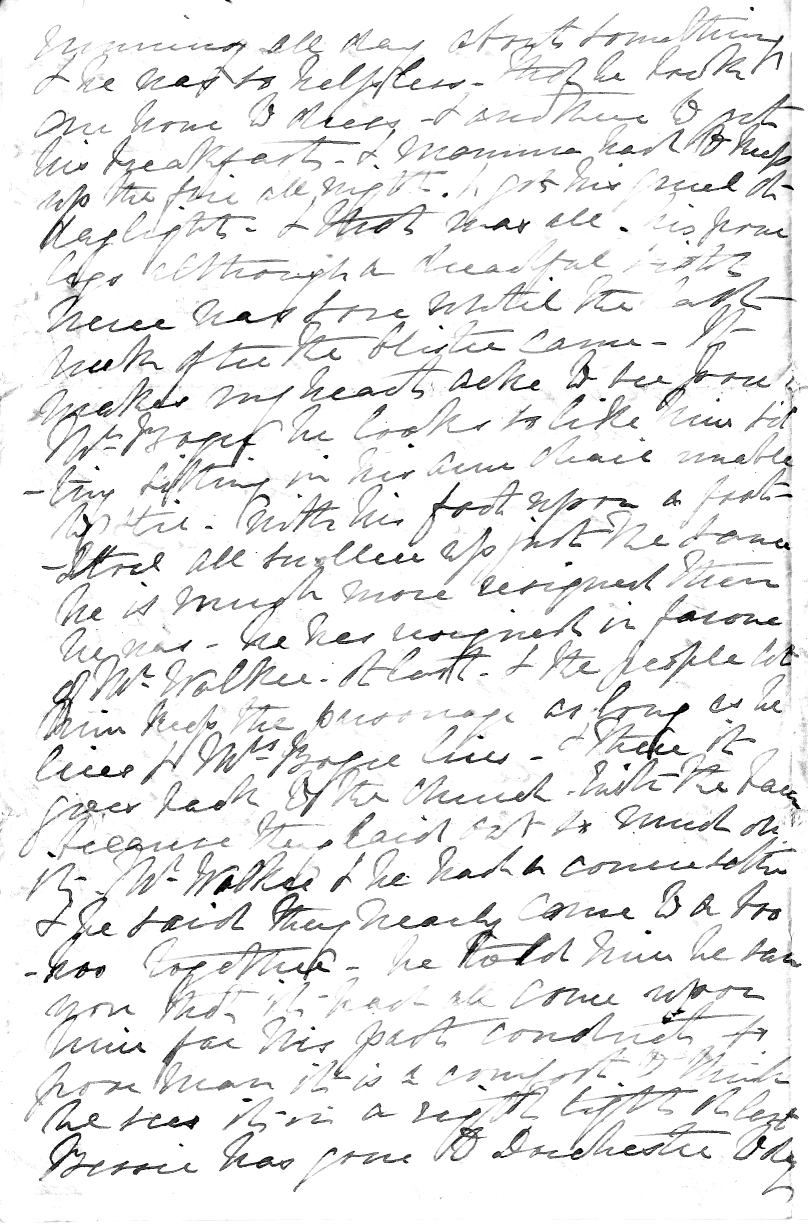 running all day about something
& he was so helpless - that he took
one hour to dress - & another to eat
his breakfast - & Mamma had to keep
up the fire all night. & got his gruel at
daylight - & that was all - his poor
legs although a dreadful sight
never was sore until the last
week after the blister came - It
makes my heart ache to see poor
Mr. Bogie he looks so like him sit
-ting sitting in his arm chair unable
to stir - with his foot upon a foot-
-stool all swollen up just the same
he is much more resigned then
he was - he has resigned in favour
of Mr. Walker - at last - & the people let
him keep the parsonage as long as he
lives & Mrs Bogie lives - & then it
goes back to the church - with the barn
because they laid out so much on
it - Mr. Walker & he had a conversation
& he said they nearly came to a boo
-hoo together - he told him he saw
now that it had all come upon
him for his past conduct to
poor man it is a comfort to think
he sees it in a right light at last
Bessie has gone to Dorchester to day